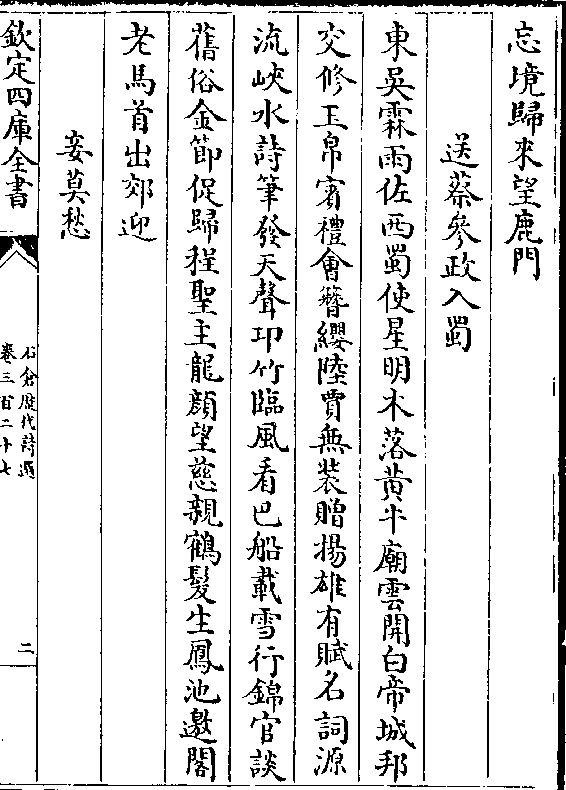 忘境歸來望鹿門
送蔡參政入蜀
東吳霖雨佐西蜀使星明木落黃牛廟雲開白帝城邦
交修玉帛賓禮會簪纓陸賈無裝贈揚雄有賦名詞源
流峽水詩筆發天聲卭竹臨風看巴船載雪行錦官談
舊俗金節促歸程聖主龍顏望慈親鶴髮生鳳池邀閣
老馬首出郊迎
妾莫愁
欽定四庫全書
石倉歷代詩選
卷三百二十七
二